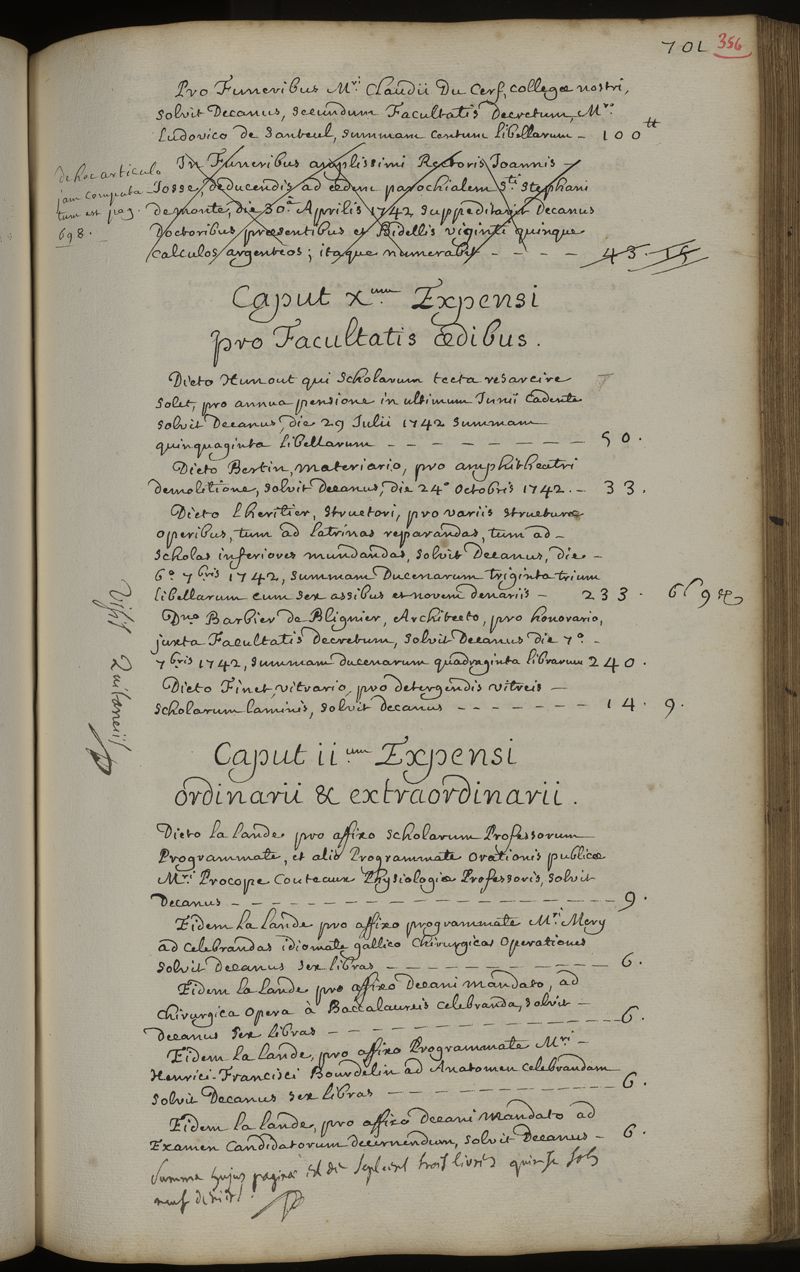 701 356
Pro Funeribus Mri Claudii Du Cerf, collegæ nostri,
solvit Decanus, secundum Facultatis Decretum, Mro
Ludovico de Santeul, summam centum libellarum - 100 tt
De hoc articulo
jam computa
tum est pag.
698.
In Funeribus amplissimi Rectoris Joannis -
Josse, deducendis ad ædem parochialem Sti Stephani
de monte, die 30a Aprilis 1742 suppeditavit Decanus
Doctoribus præsentibus et Bidellis viginti quinque
calculos argenteos; itaque numerabit - - - - 43. 15
Caput Xum Expensi
pro Facultatis ædibus.
Dicto Hunout qui scholarum tecta resarcire
solet, pro annua pensione in ultimum Junii cadente
solvit Decanus, die 29 Julii 1742 summam
quinquaginta libellarum - - - - - - - - 50.
Dicto Bertin, materiario, pro amphitheatri
demolitione, solvit Decanus, die 24a Octobris 1742. - 33.
Dicto Lheritier, structori, pro variis structuræ
operibus, tum ad latrinas reparandas, tum ad -
scholas inferiores mundandas, solvit Decanus, die -
6a 7bris 1742, summam Ducenarum triginta trium
libellarum cum sex assibus et novem denariis - 233. 6 s 9 d
Dno Barbier de Blignier, Architecto, pro honorario,
juxta Facultatis Decretum, solvit Decanus die 7a -
7bris 1742, summam ducenarum quadraginta librarum 240.
Dicto Finet, vitrario, pro detergendis vitreis -
scholarum laminis, solvit decanus - - - - - - - 14. 9.
Caput iium Expensi
ordinarii & extraordinarii.
Dicto la Lande pro affixo scholarum Professorum
Programmate, et alio Programmate orationis publicæ
Mri Procope Couteaux Physiologiæ Professoris, solvit
Decanus - - - - - - - - - - - - - - 9.
Eidem la Lande pro affixo programmate Mri Mery
ad celebrandas idiomate gallico Chirurgicas Operationes
solvit Decanus sex libras - - - - - - - - - 6.
Eidem la Lande pro affixo Decani mandato, ad
Chirurgica Opera à Baccalaureis celebranda, solvit -
Decanus sex libras - - - - - - - - - - - 6.
Eidem la Lande, pro affixo Programmate Mri -
Henrici-Francisci Bourdelin ad Anatomen celebrandam
solvit Decanus sex libras - - - - - - - - - 6.
Eidem la Lande, pro affixo Decani mandato ad
Examen Candidatorum decernendum, solvit Decanus - 6.
Summa hujus paginæ est de sept cent trois livres quinze sols
neuf deniers.